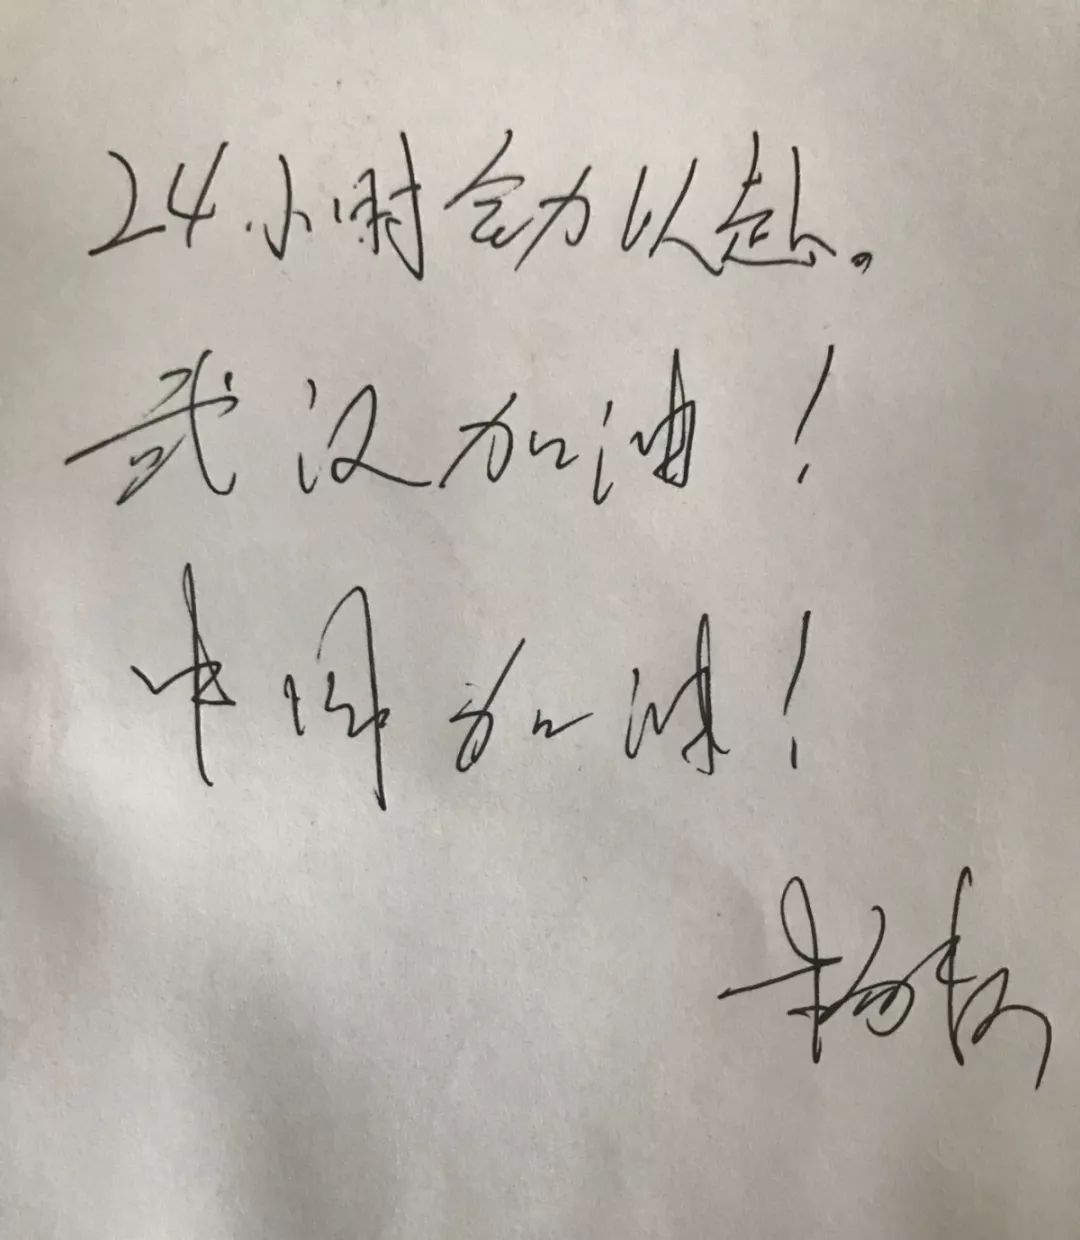 24小时全力以赴。
武汉加油！
中国加油！
杨